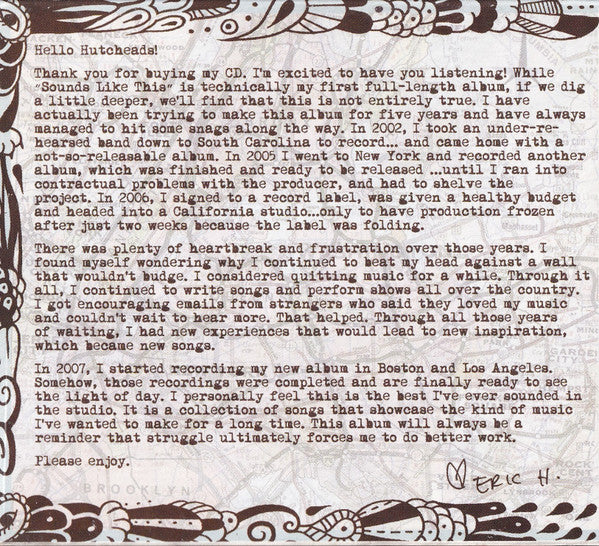 Hello Hutcheads!
Thank you for buying my CD. I'm excited to have you listening! While
"Sounds Like This" is technically my first full-length album, if we dig
a little deeper, we'll find that this is not entirely true. I have
actually been trying to make this album for five years and have always
managed to hit some snags along the way. In 2002, I took an under-re-
hearsed band down to South Carolina to record... and came home with a
not-so-releasable album. In 2005 I went to New York and recorded another
album, which was finished and ready to be released ...until I ran into
contractual problems with the producer, and had to shelve the
project. In 2006, I signed to a record label, was given a healthy budget
and headed into a California studio...only to have production frozen
after just two weeks because the label was folding.
There was plenty of heartbreak and frustration over those years. I
found myself wondering why I continued to beat my head against a wall
that wouldn't budge. I considered quitting music for a while. Through it
all, I continued to write songs and perform shows all over the country.
I got encouraging emails from strangers who said they loved my music
and couldn't wait to hear more. That helped. Through all those years
of waiting, I had new experiences that would lead to new inspiration,
which became new songs.
In 2007, I started recording my new album in Boston and Los Angeles.
Somehow, those recordings were completed and are finally ready to see
the light of day. I personally feel this is the best I've ever sounded in
the studio. It is a collection of songs that showcase the kind of music
I've wanted to make for a long time. This album will always be a
reminder that struggle ultimately forces me to do better work.
Please enjoy.
ERIC H.
BROOKLYN
GARDEN
CITY
ROCK
CENTRE
LYNBROOK